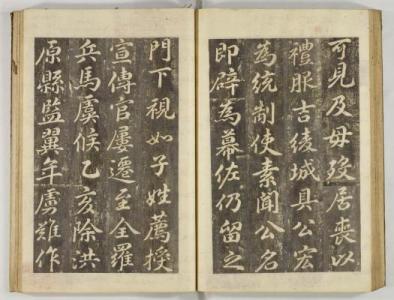 可見及母歿居喪以
禮服吉綾城具公宏
為統制使素聞公名
即辟為幕佐仍留之
門下視如子姓薦授
宣傳官屢遷至全羅
兵馬虞候乙亥除洪
原縣監翼年虜難作